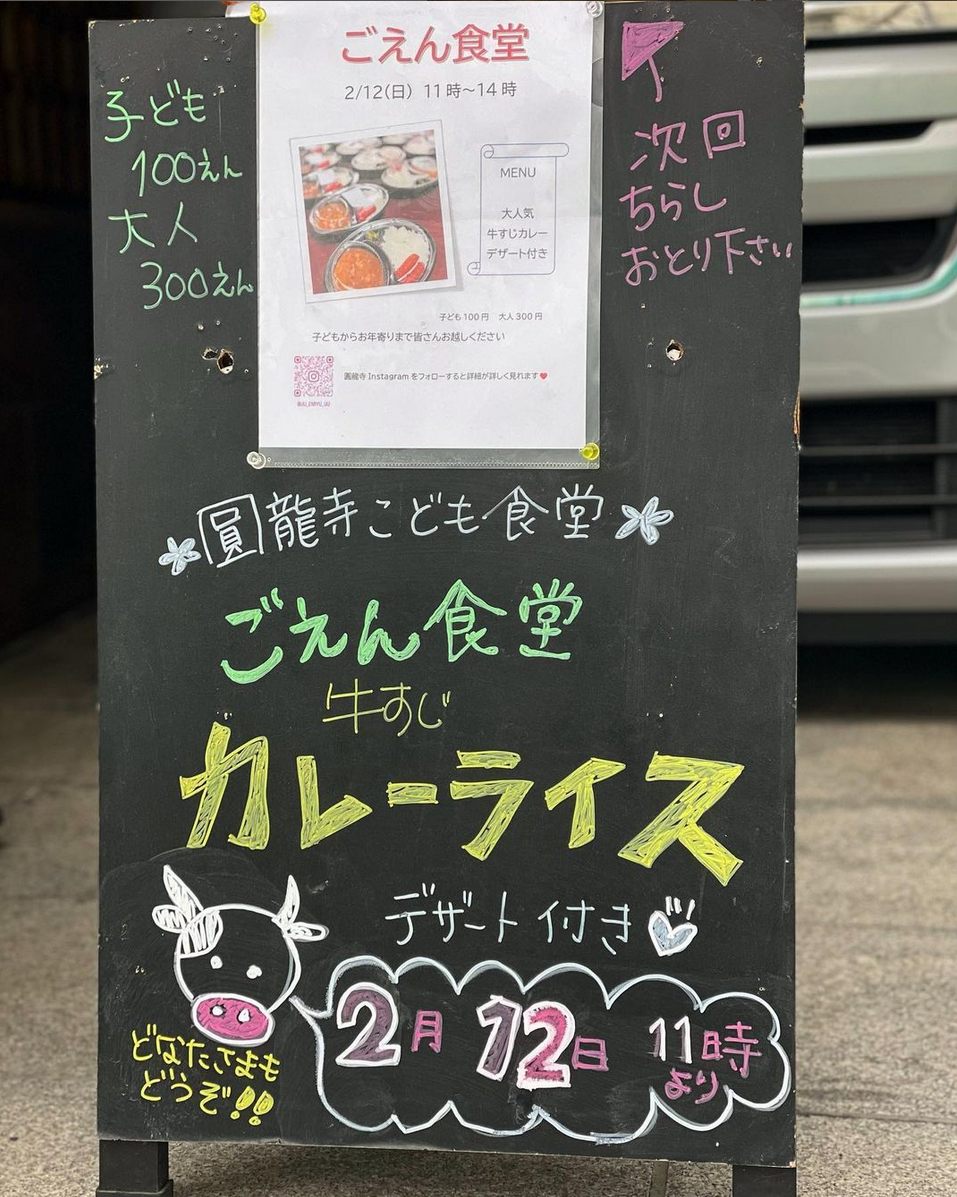 ごえん食堂
2/12(日) 11時～14時
MENU
大人気
牛すじカレー
デザート付き
子ども100円 大人300円
子どもからお年寄りまで皆さんお越しください
圓龍寺 Instagram をフォローすると詳細が詳しく見れます❤
子ども
100えん
大人
300えん
次回
ちらし
おとり下さい
圓龍寺こども食堂
ごえん食堂
牛すじ
カレーライス
デザート付き
どなたさまも
どうぞ!!
2月12日 11時
より